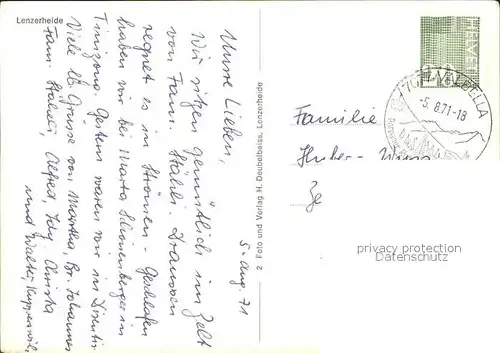 Lenzerheide
5. Aug. 71
Unsre Lieben,
Wir sitzen gemütlich im Zelt
von Fam. Stäheli. Draussen
regnet es in Strömen - Geschlafen
haben wir bei Marta Schönenberger in
Tinizong. Gestern waren wir in Disentis
Viele lb. Grüsse von Martha, Br. Johannes
Fam. Stäheli, Alfred, Idy, Christa
und Walter
2 Foto und Verlag H. Deubelbeiss, Lenzerheide
HELVETIA
VALBELLA
-5. 8.71-18
Familie
Huber-
privacy protection
Datenschutz